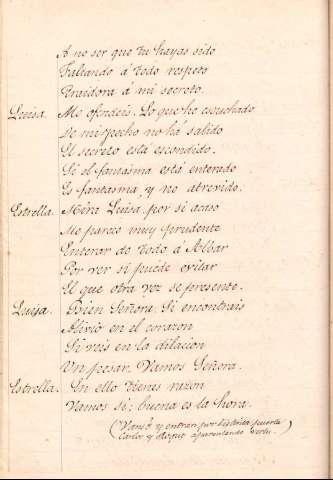 A no ser que tu hayas sido
Faltando á todo respeto
Traidora á mi secreto.
Luisa. Me ofendeis. Lo que he escuchado
de mi pecho no há salido
El secreto está escondido.
Si el fantasma está enterado
Es fantasma, y no atrevido.
Estrella. Mira Luisa, por si acaso
Me parece muy prudente
Enterar de todo á Albar
Por ver si puede evitar
El que otra vez se presente.
Luisa. Bien Señora. Si encontrais
Alivio en el corazon
Si veis en la dilacion
Un pesar. Vamos Señora.
Estrella. En ello tienes razon
Vamos si; buena es la hora.
(Vanse y entran por distinta puerta
Carlos y Roque aparentando